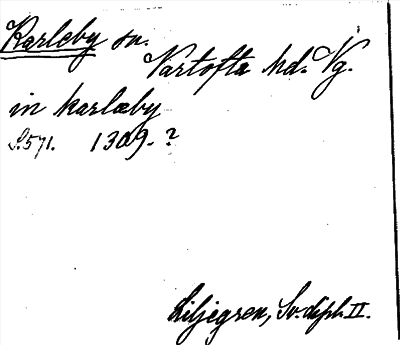 Karleby sn.
Vartofta hd. Vg.
in karlæby
S. 571. 1309-?
Liljegren, Sv. dipl. II.